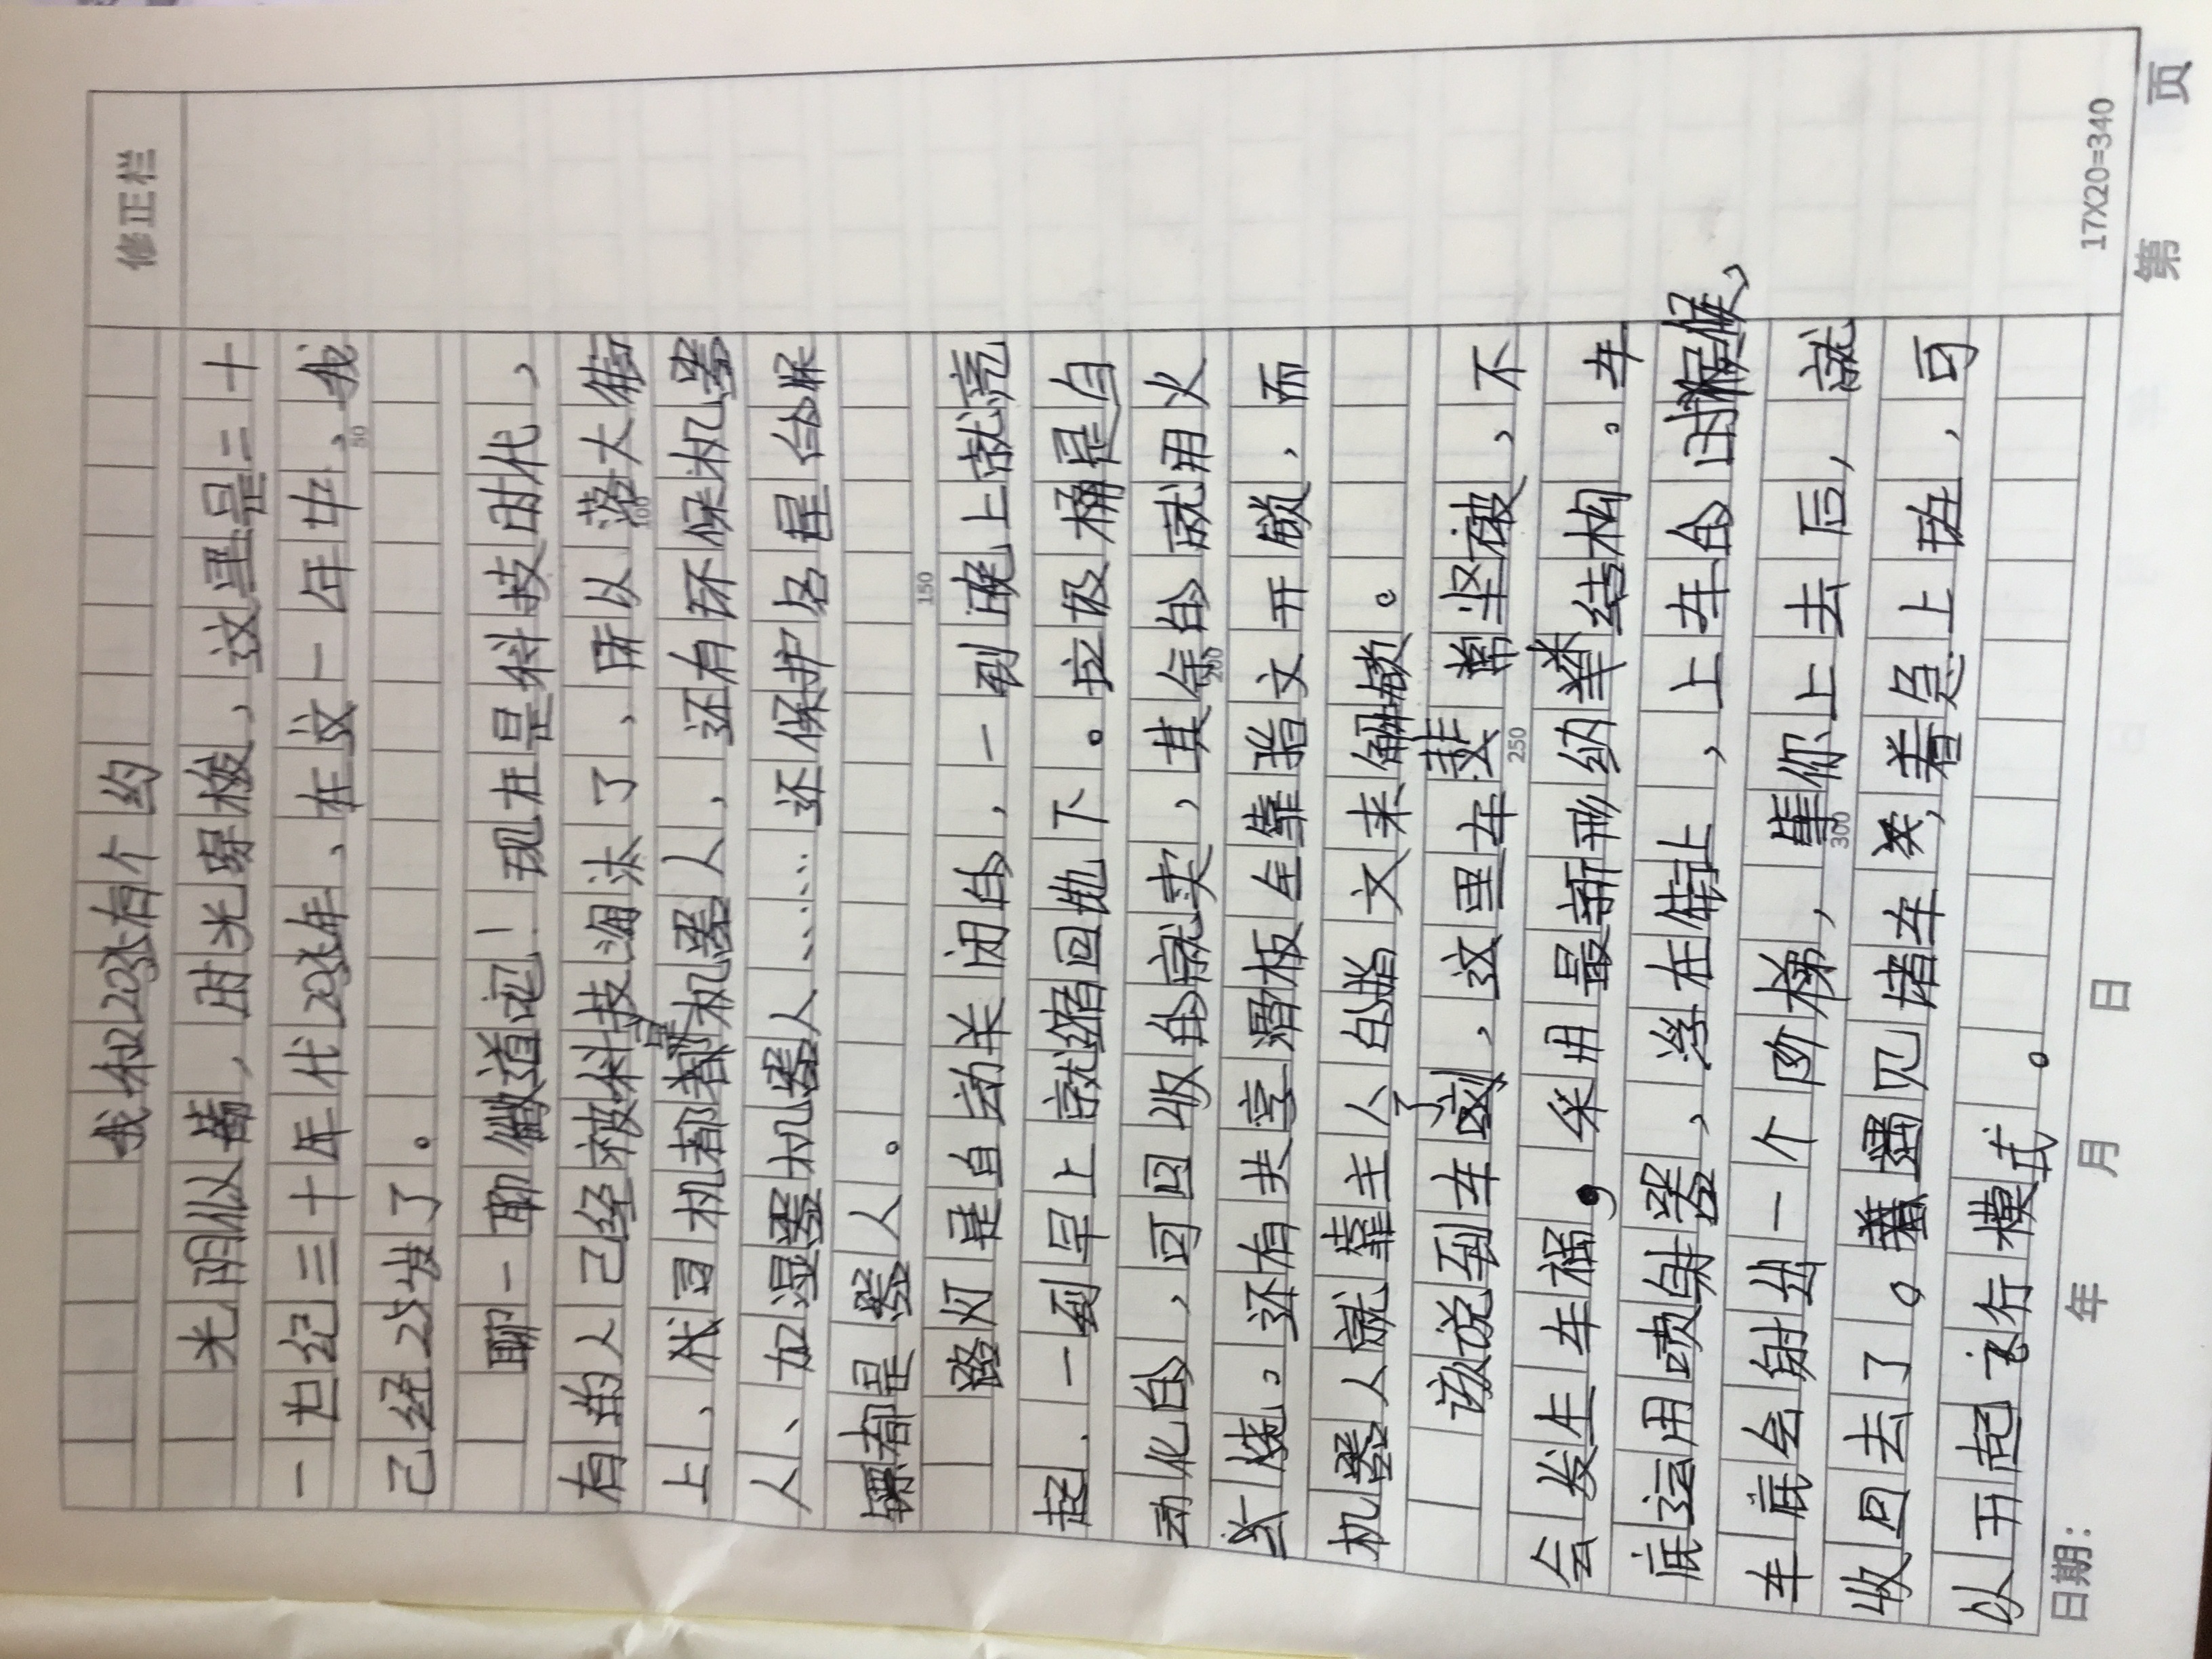 修正栏
我和2035有个约
光阴似箭，时光穿梭、这里是二十
一世纪三十年代2035年、在这一年中、我
己经25岁了。
聊一聊微道吧！现在是科技时代，
有的人己经被科技淘汰了、所以落大街
上、代司机都都是机器人，还有环保机器
人、加湿器机器人……还保护名星的保
镖都是器人。
路灯是自动关闭的，一到晚上就亮
起、一到早上就缩回地下。垃圾桶是自
动化的，可回收的就卖，其余的就用火
烧。还有共享滑板全靠指文开锁，而
机器人就靠主人的指文来解锁。
该说到车了，这里车非常坚硬、不
会发生车祸，采用最新形纳米结构。车
底运用喷射器、浮在街上，上车的时候，
车底会射出一个阶梯，等你上去后，就
收回去了。遇见堵车，着急上班，可
以开起飞行模式。
50
100
150
200
250
300
17X20=340
日期： 年 月 日 第 页